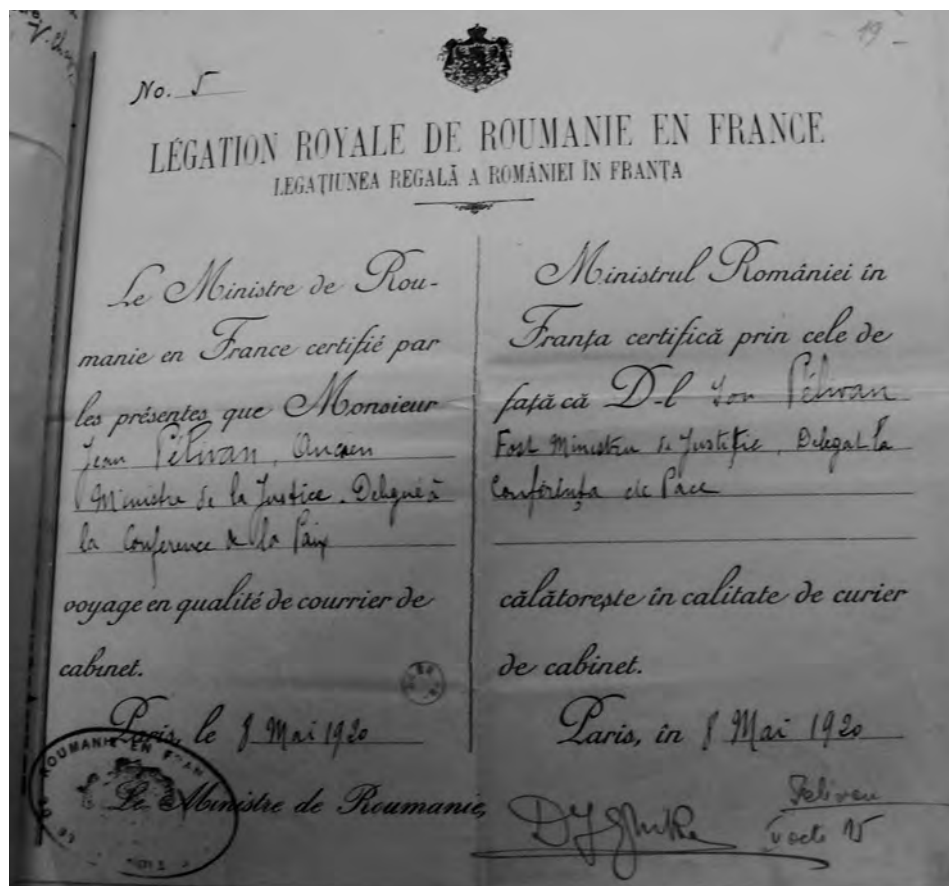 19 -
No. 5
LÉGATION ROYALE DE ROUMANIE EN FRANCE
LEGAȚIUNEA REGALĂ A ROMÂNIEI ÎN FRANȚA
Le Ministre de Rou-
manie en France certifié par
les présentes que Monsieur
Jean Pélivan, Ancien
Ministre de la Justice. Delegué à
la Conference de la Paix
voyage en qualité de courrier de
cabinet.
Paris, le 8 Mai 1920
Ministrul României în
Franța certifică prin cele de
față că D-l Ion Pélivan
Fost Ministru de Justiție, Delegat la
Conferința de Pace
călătorește în calitate de curier
de cabinet.
Paris, în 8 Mai 1920
Le Ministre de Roumanie,
Pelivan
ROUMANIE EN